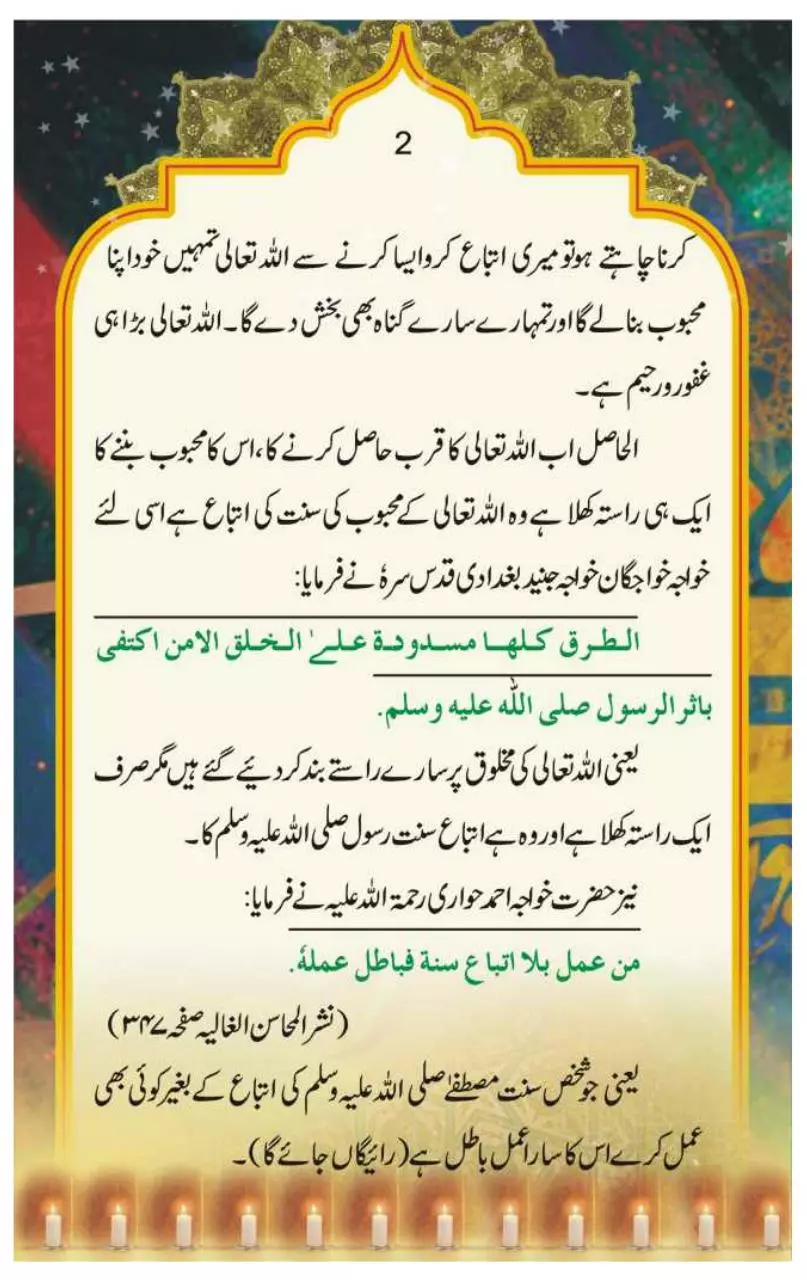 2
کرنا چاہتے ہو تو میری اتباع کرو ایسا کرنے سے اللہ تعالی تمہیں خود اپنا
محبوب بنالے گا اور تمہارے سارے گناہ بھی بخش دے گا۔ اللہ تعالی بڑا ہی
غفور و رحیم ہے۔
الحاصل اب اللہ تعالی کا قرب حاصل کرنے کا، اس کا محبوب بننے کا
ایک ہی راستہ کھلا ہے وہ اللہ تعالی کے محبوب کی سنت کی اتباع ہے اسی لئے
خواجہ خواجگان خواجہ جنید بغدادی قدس سرہٗ نے فرمایا:
الطرق کلها مسدودة علےٰ الخلق الامن اکتفی
باثر الرسول صلی الله علیه وسلم.
یعنی اللہ تعالی کی مخلوق پر سارے راستے بند کر دئیے گئے ہیں مگر صرف
ایک راستہ کھلا ہے اور وہ ہے اتباع سنت رسول صلی اللہ علیہ وسلم کا۔
نیز حضرت خواجہ احمد حواری رحمۃ اللہ علیہ نے فرمایا:
من عمل بلا اتباع سنة فباطل عملهٗ.
(نشر المحاسن الغالیہ صفحہ ۳۴۷)
یعنی جو شخص سنت مصطفےٰ صلی اللہ علیہ وسلم کی اتباع کے بغیر کوئی بھی
عمل کرے اس کا سارا عمل باطل ہے (رائیگاں جائے گا)۔